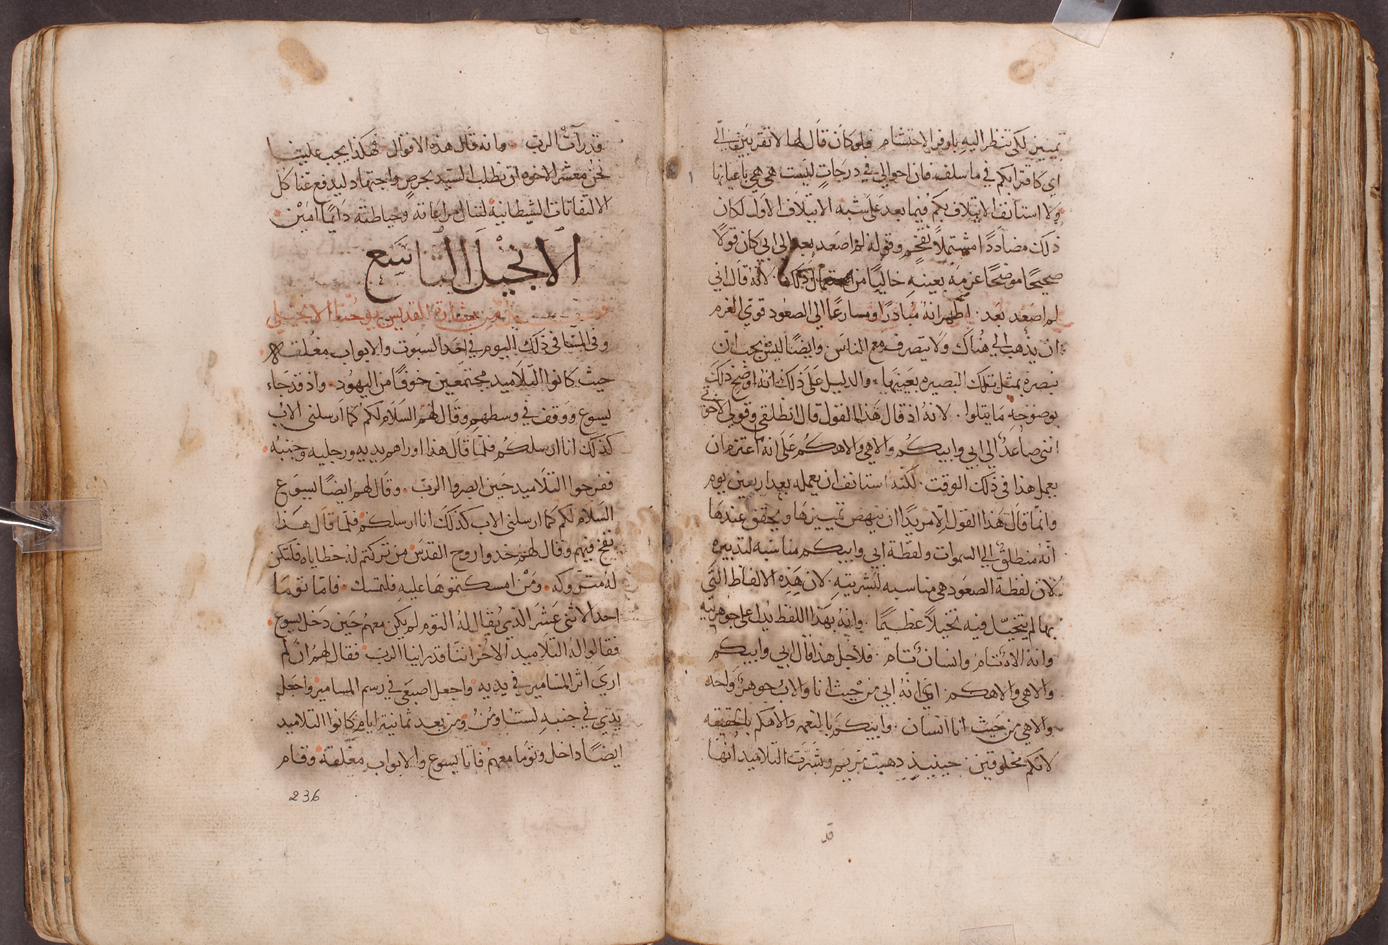 تمييزين لكي تنظر اليه باوفر الاحتشام فلو كان قال لها لا تقربين الي
اي كافترابكم في ما سلف فان احوالي في درجات ليست هي هي باعيانها
ولا استانف الايتلاف بكم فيما بعد على شبه الايتلاف الاول لكان
ذلك مضاددًا مشتملاً تفخم وقوله لم اصعد بعد الى ابي كان قولاً
صحيحًا موضحًا عزمه بعينه خاليًا من ذلك لانه قال اني
لم اصعد بعد اظهر انه مبادرًا ومسارعًا الى الصعود قوي العزم
ان يذهب الى هناك ولا يتصرف مع الناس وايضًا ليس يجب ان
نبصره بمثل تلك البصيره بعينها والدليل على ذلك انه اوضح ذلك
بوضوحه ما يتلوا لانه اذ قال هذا القول قال انطلقي وقولي لاخوتي
انني صاعد الى ابي وابيكم والاهي والاهكم على انه اعتزم ان
يعمل هذا في ذلك الوقت لكنه استانف ان يعمله بعد اربعين يوم
وانما قال هذا القول الا مريدًا ان ينهض تمييزها ويحقق عندها
انه منطلق الى السموات ولفظة ابي وابيكم مناسبه لتدبيره
لان لفظة الصعود هي مناسبه لبشريته لان هذه الالفاظ التي
بها لم يتخيل فيه تخيلاً عظيمًا وانه بهذا اللفظ يدل على جوهريته
وانه الاه تام وانسان تام فلاجل هذا قال ابي وابيكم
والاهي والاهكم اي انه ابي من حيث انا والاب جوهر واحد
والاهي من حيث انا انسان وابيكم بالنعمه والاهكم بالحقيقه
لانكم مخلوقين حينيذ ذهبت مريم وبشرت التلاميد انها
قد
قد رات الرب وانه قال هذه الاقوال فهكذا يجب علينا
نحن معشر الاخوه ان نطلب السيد بحرص واجتهاد ليدفع عنا كل
الالتفاتات الشيطانية لننال مراعاته وحياطته دايمًا امين
الانجيل التاسع
من بشارة القديس يوحنا الانجيلي
وفي المسا في ذلك اليوم في احد السبوت والابواب مغلقه
حيث كانوا التلاميد مجتمعين خوفًا من اليهود واذ قد جاء
يسوع ووقف في وسطهم وقال لهم السلام لكم كما ارسلني الاب
كذلك انا ارسلكم فلما قال هذا اوراهم يديه ورجليه وجنبه
ففرحوا التلاميد حين ابصروا الرب وقال لهم ايضًا يسوع
السلام لكم كما ارسلني الاب كذلك انا ارسلكم فلما قال هذا
نفخ فيهم وقال لهم خدوا روح القدس من تركتم له خطاياه فلتكن
له متروكه ومن امسكتموها عليه فلتمسك فاما توما
احد الاثني عشر الذي يقال له التوم لم يكن معهم حين دخل يسوع
فقالوا له التلاميد الاخر اننا قد راينا الرب فقال لهم ان لم
ارى اثر المسامير في يديه واجعل اصبعي في رسم المسامير واجعل
يدي في جنبه لست اومن ومن بعد ثمانية ايام كانوا التلاميد
ايضًا داخل وتوما معهم فاتا يسوع والابواب مغلقة وقام
236